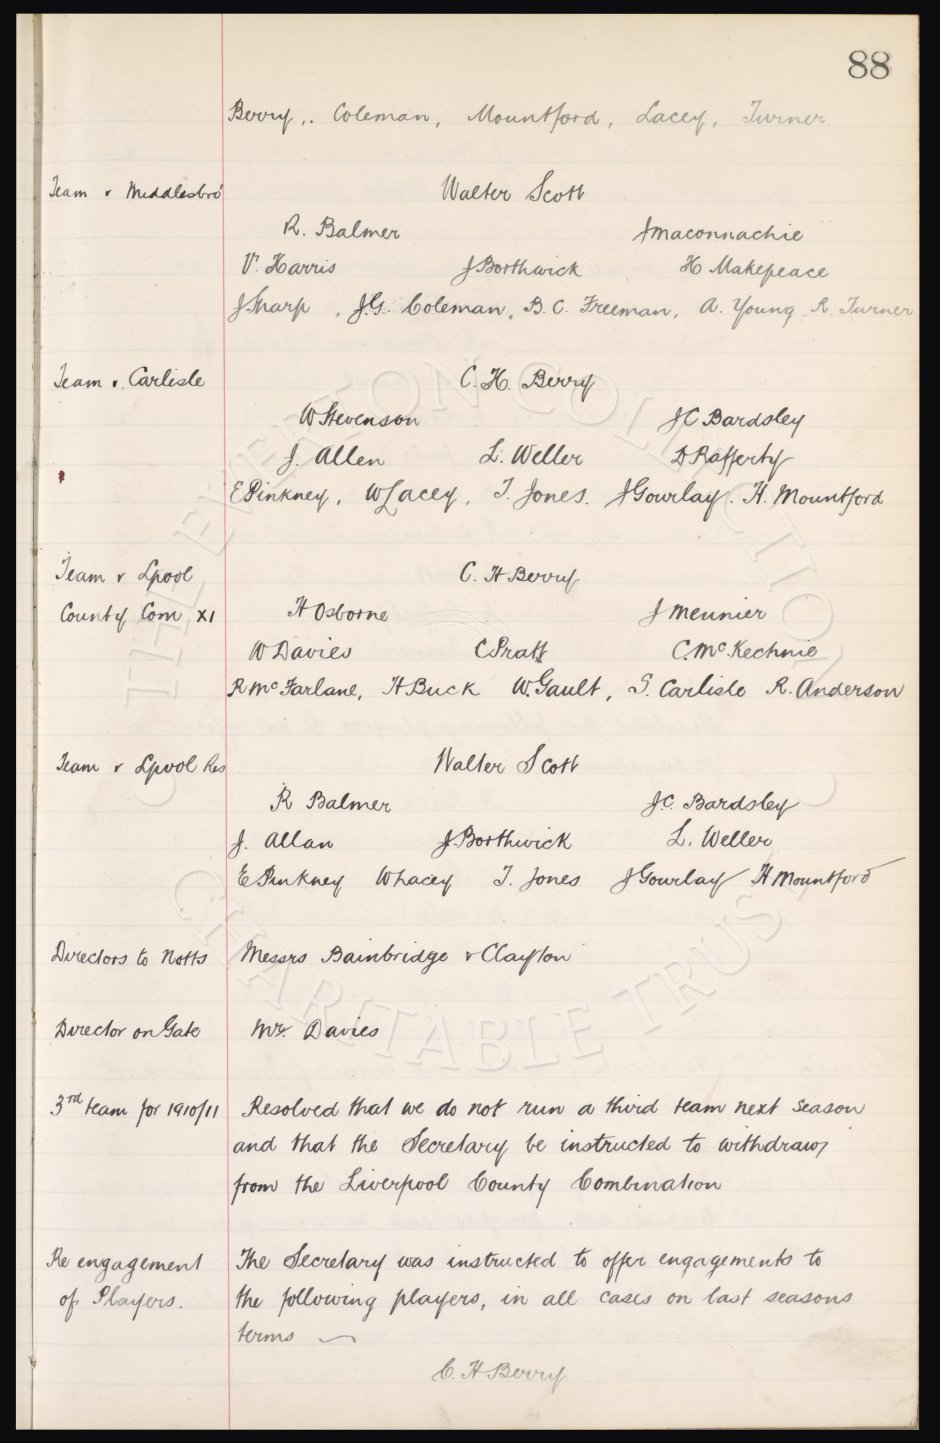 88
Berry, . Coleman, Mountford, Lacey, Turner
Team v Middlesbro' Walter Scott
R. Balmer J Maconnachie
V. Harris J Borthwick H Makepeace
J Sharp , J.G. Coleman, B. C. Freeman, A. Young R. Turner
Team v. Carlisle C. H. Berry
W Stevenson J C Bardsley
J. Allen L. Weller D Rafferty
E Pinkney, W Lacey, T. Jones. J Gourlay. H. Mountford
Team v Lpool C. H Berry
County Com XI H Osborne J Meunier
W Davies C Pratt C. McKechnie
R McFarlane, H Buck W. Gault, S. Carlisle R. Anderson
Team v Lpool Res Walter Scott
R Balmer J. C. Bardsley
J. Allan J. Borthwick L. Weller
E Pinkney W Lacey T. Jones J Gourlay H Mountford
Directors to Notts Messrs Bainbridge & Clayton
Director on Gate Mr. Davies
3rd team for 1910/11 Resolved that we do not run a third team next season
and that the Secretary be instructed to withdraw
from the Liverpool County Combination
Re engagement The Secretary was instructed to offer engagements to
of Players. the following players, in all cases on last seasons
terms
C. H Berry
THE EVERTON COLLECTION
CHARITABLE TRUST